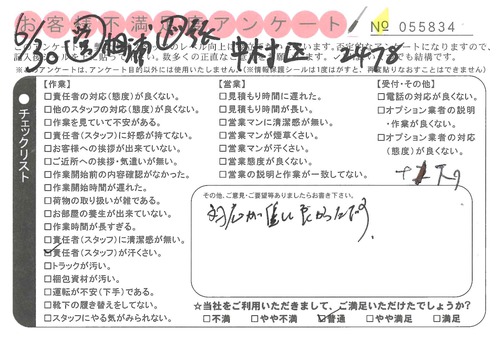 お客様不満アンケート
№ 055834
6/30
中村区
24-18
※このアンケートは、アンケート目的以外には使用いたしません。(※情報保護シールは1度はがすと、再貼り付けすることはできません)
チェックリスト
【作業】
□責任者の対応(態度)が良くない。
□他のスタッフの対応(態度)が良くない。
□作業を見ていて不安がある。
□責任者(スタッフ)に好感が持てない。
□お客様への挨拶が出来ていない。
□ご近所への挨拶・気遣いが無い。
□作業開始前の内容確認がなかった。
□作業開始時間が遅れた。
□荷物の取り扱いが雑である。
□お部屋の養生が出来ていない。
□作業時間が長すぎる。
□責任者(スタッフ)に清潔感が無い。
☑責任者(スタッフ)が汗くさい。
□トラックが汚い。
□梱包資材が汚い。
□運転が不安(下手)である。
□靴下の履き替えをしてない。
□スタッフにやる気がみられない。
【営業】
□見積もり時間に遅れた。
□見積もり時間が長い。
□営業マンに清潔感が無い。
□営業マンが煙草くさい。
□営業マンが汗くさい。
□営業態度が良くない。
□営業の説明と作業が一致してない。
【受付・その他】
□電話の対応が良くない。
□オプション業者の説明
・作業が良くない。
□オプション業者の対応
(態度)が良くない。
その他、ご意見・ご要望等ありましたらお書き下さい。
☆当社をご利用いただきまして、ご満足いただけたでしょうか?
□不満 □やや不満 ☑普通 □やや満足 □満足